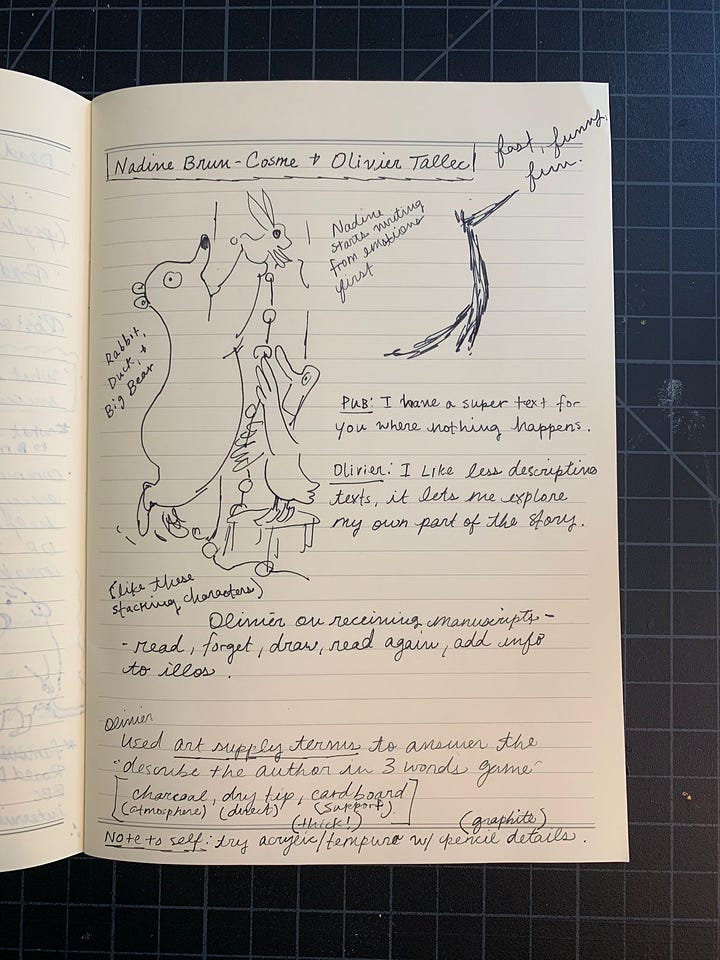 Nadine Brun-Cosme + Olivier Tallec
fast, funny,
fun.
Nadine
starts writing
from emotions
first
Rabbit,
Duck, +
Big Bear
PUB: I have a super text for
you where nothing happens.
Olivier: I like less descriptive
texts, it lets me explore
my own part of the story.
(like these
stacking characters)
Olivier on receiving manuscripts -
- read, forget, draw, read again, add info
to illos.
Olivier
used art supply terms to answer the
"describe the author in 3 words game"
[charcoal, dry tip, cardboard]
(atmosphere) (direct) (support)
(thick!) (graphite)
Note to self: try acrylic/tempura w/ pencil details.